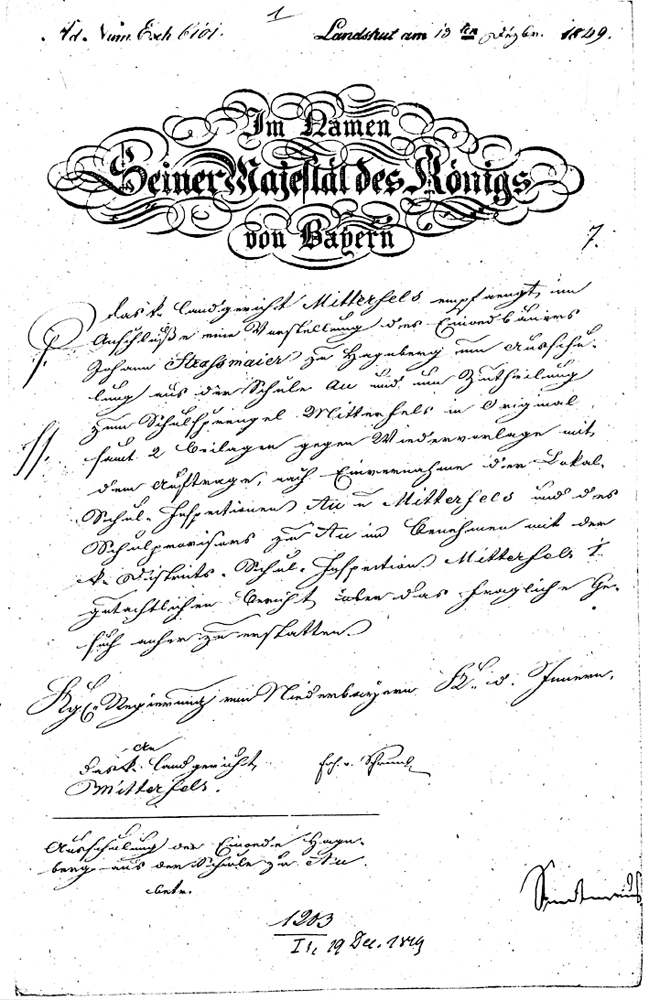 1
Ad. Num. Exh 6101. Landshut am 13 ten Dezbr. 1849.
Im Namen
Seiner Majestät des Königs
von Bayern
7.
Das k. Landgericht Mitterfels empfaengt im
Anschluße eine Vorstellung des Einoedbauers
Johann Strassmaier zu Hagnberg um Ausschu-
lung aus der Schule Au und um Zutheilung
zum Schulsprengel Mitterfels in Original
samt 2 Beilagen gegen Wiedervorlage mit
dem Auftrage, nach Einvernahme der Lokal-
Schul-Inspectionen Au u Mitterfels und des
Schulprovisors zu Au im Benehmen mit der
k. Distrikts-Schul-Inspection Mitterfels I.
gutachtlichen Bericht über das fragliche Ge-
such anher zu erstatten.
Kgl. Regierung von Niederbayern K. d. Innern.
An
das k. Landgericht
Mitterfels.
Ausschulung der Einoede Hagn-
berg aus der Schule zu Au
betr.
1203
19 Dec. 1849